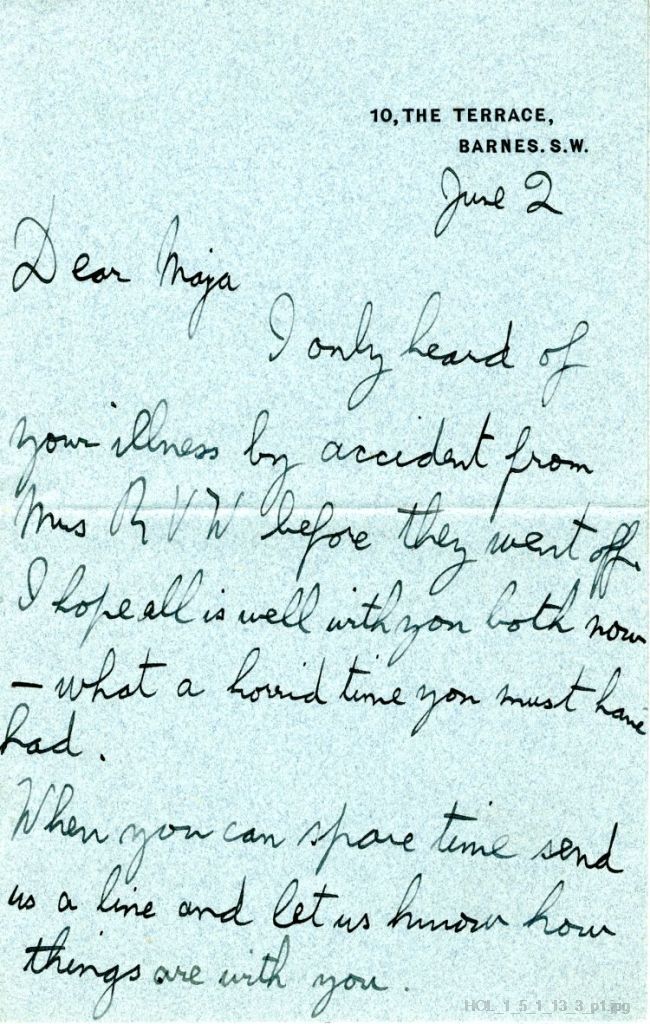 10, THE TERRACE,
BARNES. S.W.
June 2
Dear Maja
I only heard of
your illness by accident from
Mrs R V W before they went off.
I hope all is well with you both now
– what a horrid time you must have
had.
When you can spare time send
us a line and let us know how
things are with you.
HOL_1_5_1_13_3_p1.jpg